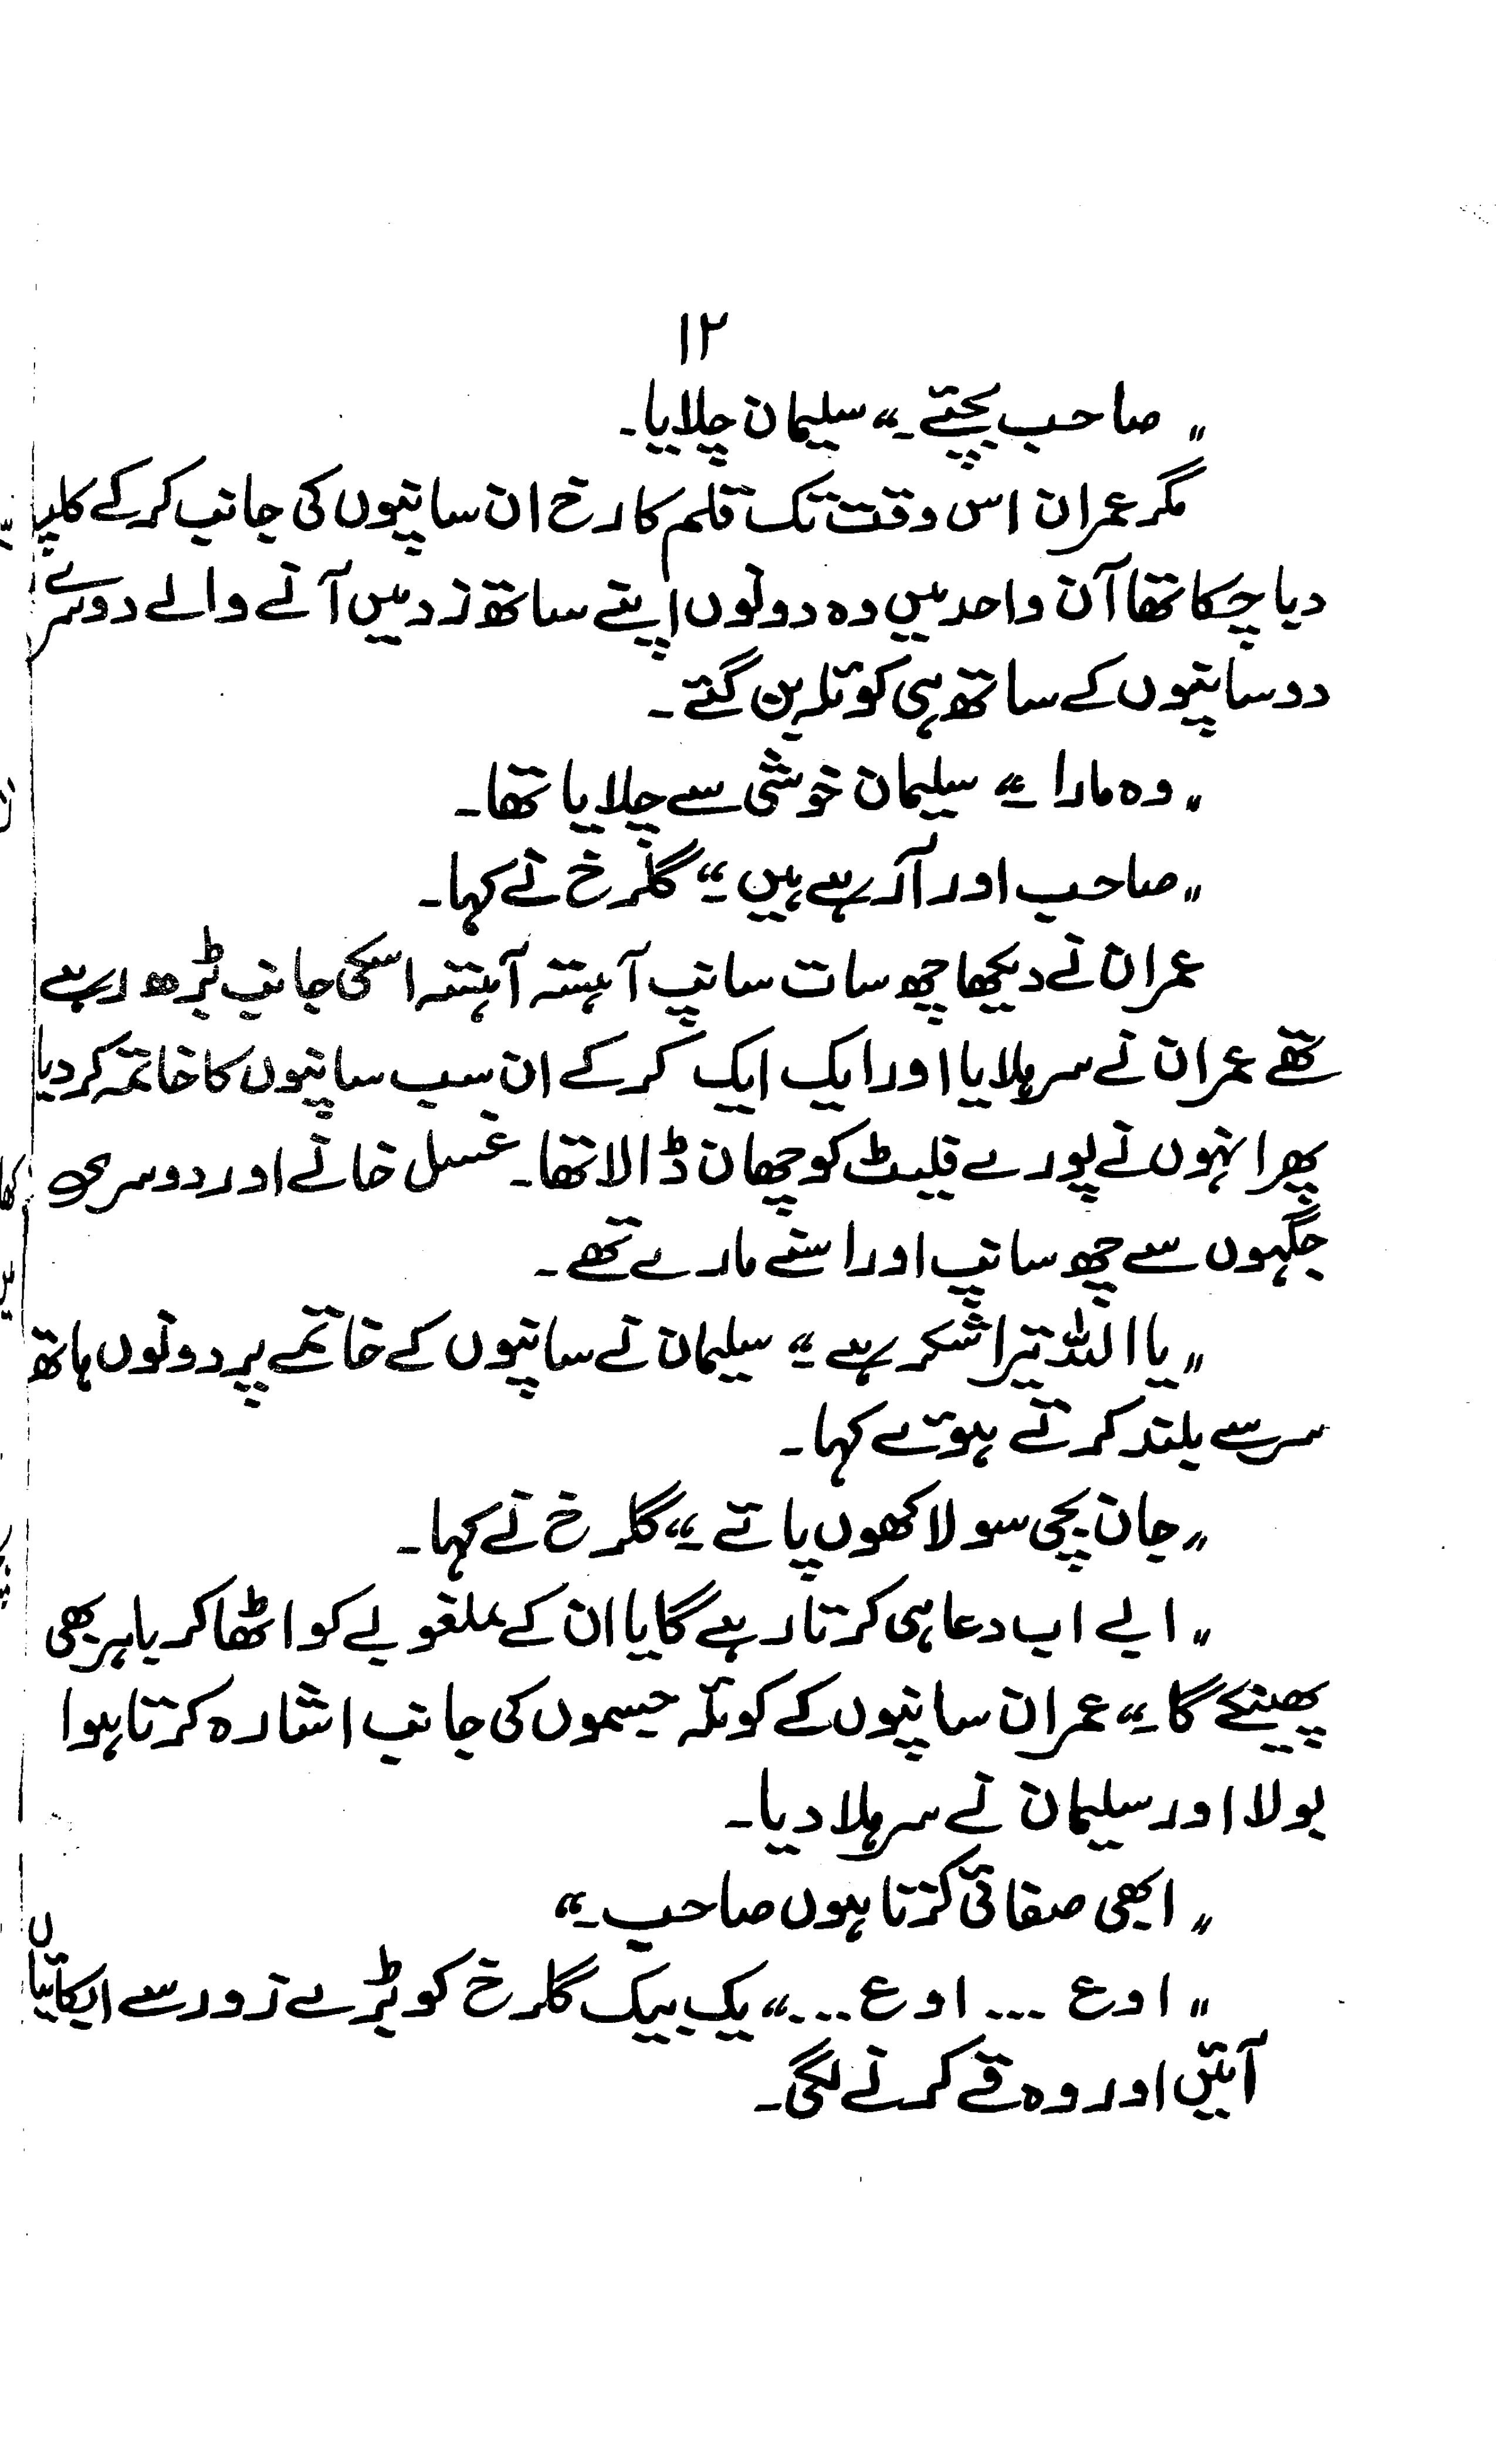 ۱۲
”صاحب بچئے۔“ سلیمان چلایا۔
مگر عمران اس وقت تک قلم کا رخ ان سانپوں کی جانب کر کے کلپ
دبا چکا تھا آن واحد میں وہ دونوں اپنے ساتھ زد میں آنے والے دوسرے
دو سانپوں کے ساتھ ہی کوئلہ بن گئے۔
”وہ مارا۔“ سلیمان خوشی سے چلایا تھا۔
”صاحب اور آ رہے ہیں۔“ گلرخ نے کہا۔
عمران نے دیکھا چھ سات سانپ آہستہ آہستہ اسکی جانب بڑھ رہے
تھے عمران نے سر ہلایا اور ایک ایک کر کے ان سب سانپوں کا خاتمہ کر دیا
پھر انہوں نے پورے فلیٹ کو چھان ڈالا تھا۔ غسل خانے اور دوسری
جگہوں سے چھ سانپ اور اسنے مارے تھے۔
”یا اللہ تیرا شکر ہے۔“ سلیمان نے سانپوں کے خاتمے پر دونوں ہاتھ
سر سے بلند کرتے ہوئے کہا۔
”جان بچی سو لاکھوں پائے۔“ گلرخ نے کہا۔
”ابے اب دعا ہی کرتا رہے گا یا ان کے ملغوبے کو اٹھا کر باہر بھی
پھینکے گا۔“ عمران سانپوں کے کوئلہ جسموں کی جانب اشارہ کرتا ہوا
بولا اور سلیمان نے سر ہلا دیا۔
”ابھی صفائی کرتا ہوں صاحب۔“
”اوع ... اوع ...۔“ یک بیک گلرخ کو بڑے زور سے ابکائیاں
آئیں اور وہ قے کرنے لگی۔